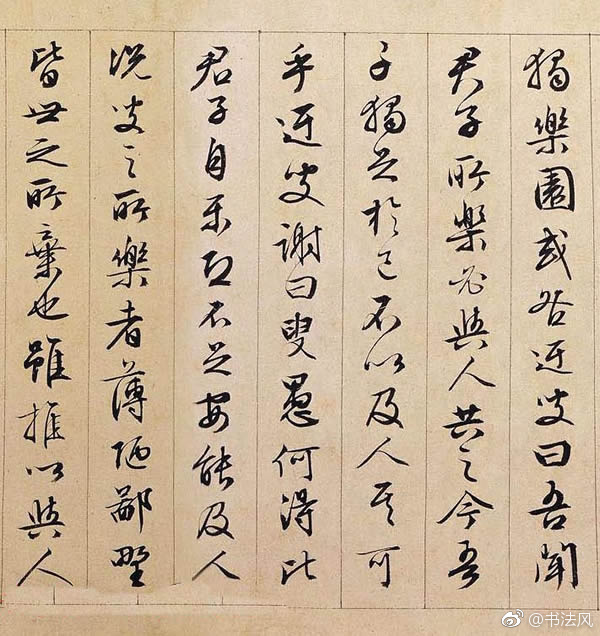 獨樂園或咎迂叟曰吾聞
君子所樂必與人共之今吾
子獨足於己不以及人其可
乎迂叟謝曰叟愚何得比
君子自乐恐不足安能及人
况叟之所樂者薄陋鄙野
皆世之所棄也雖推以與人
@书法风